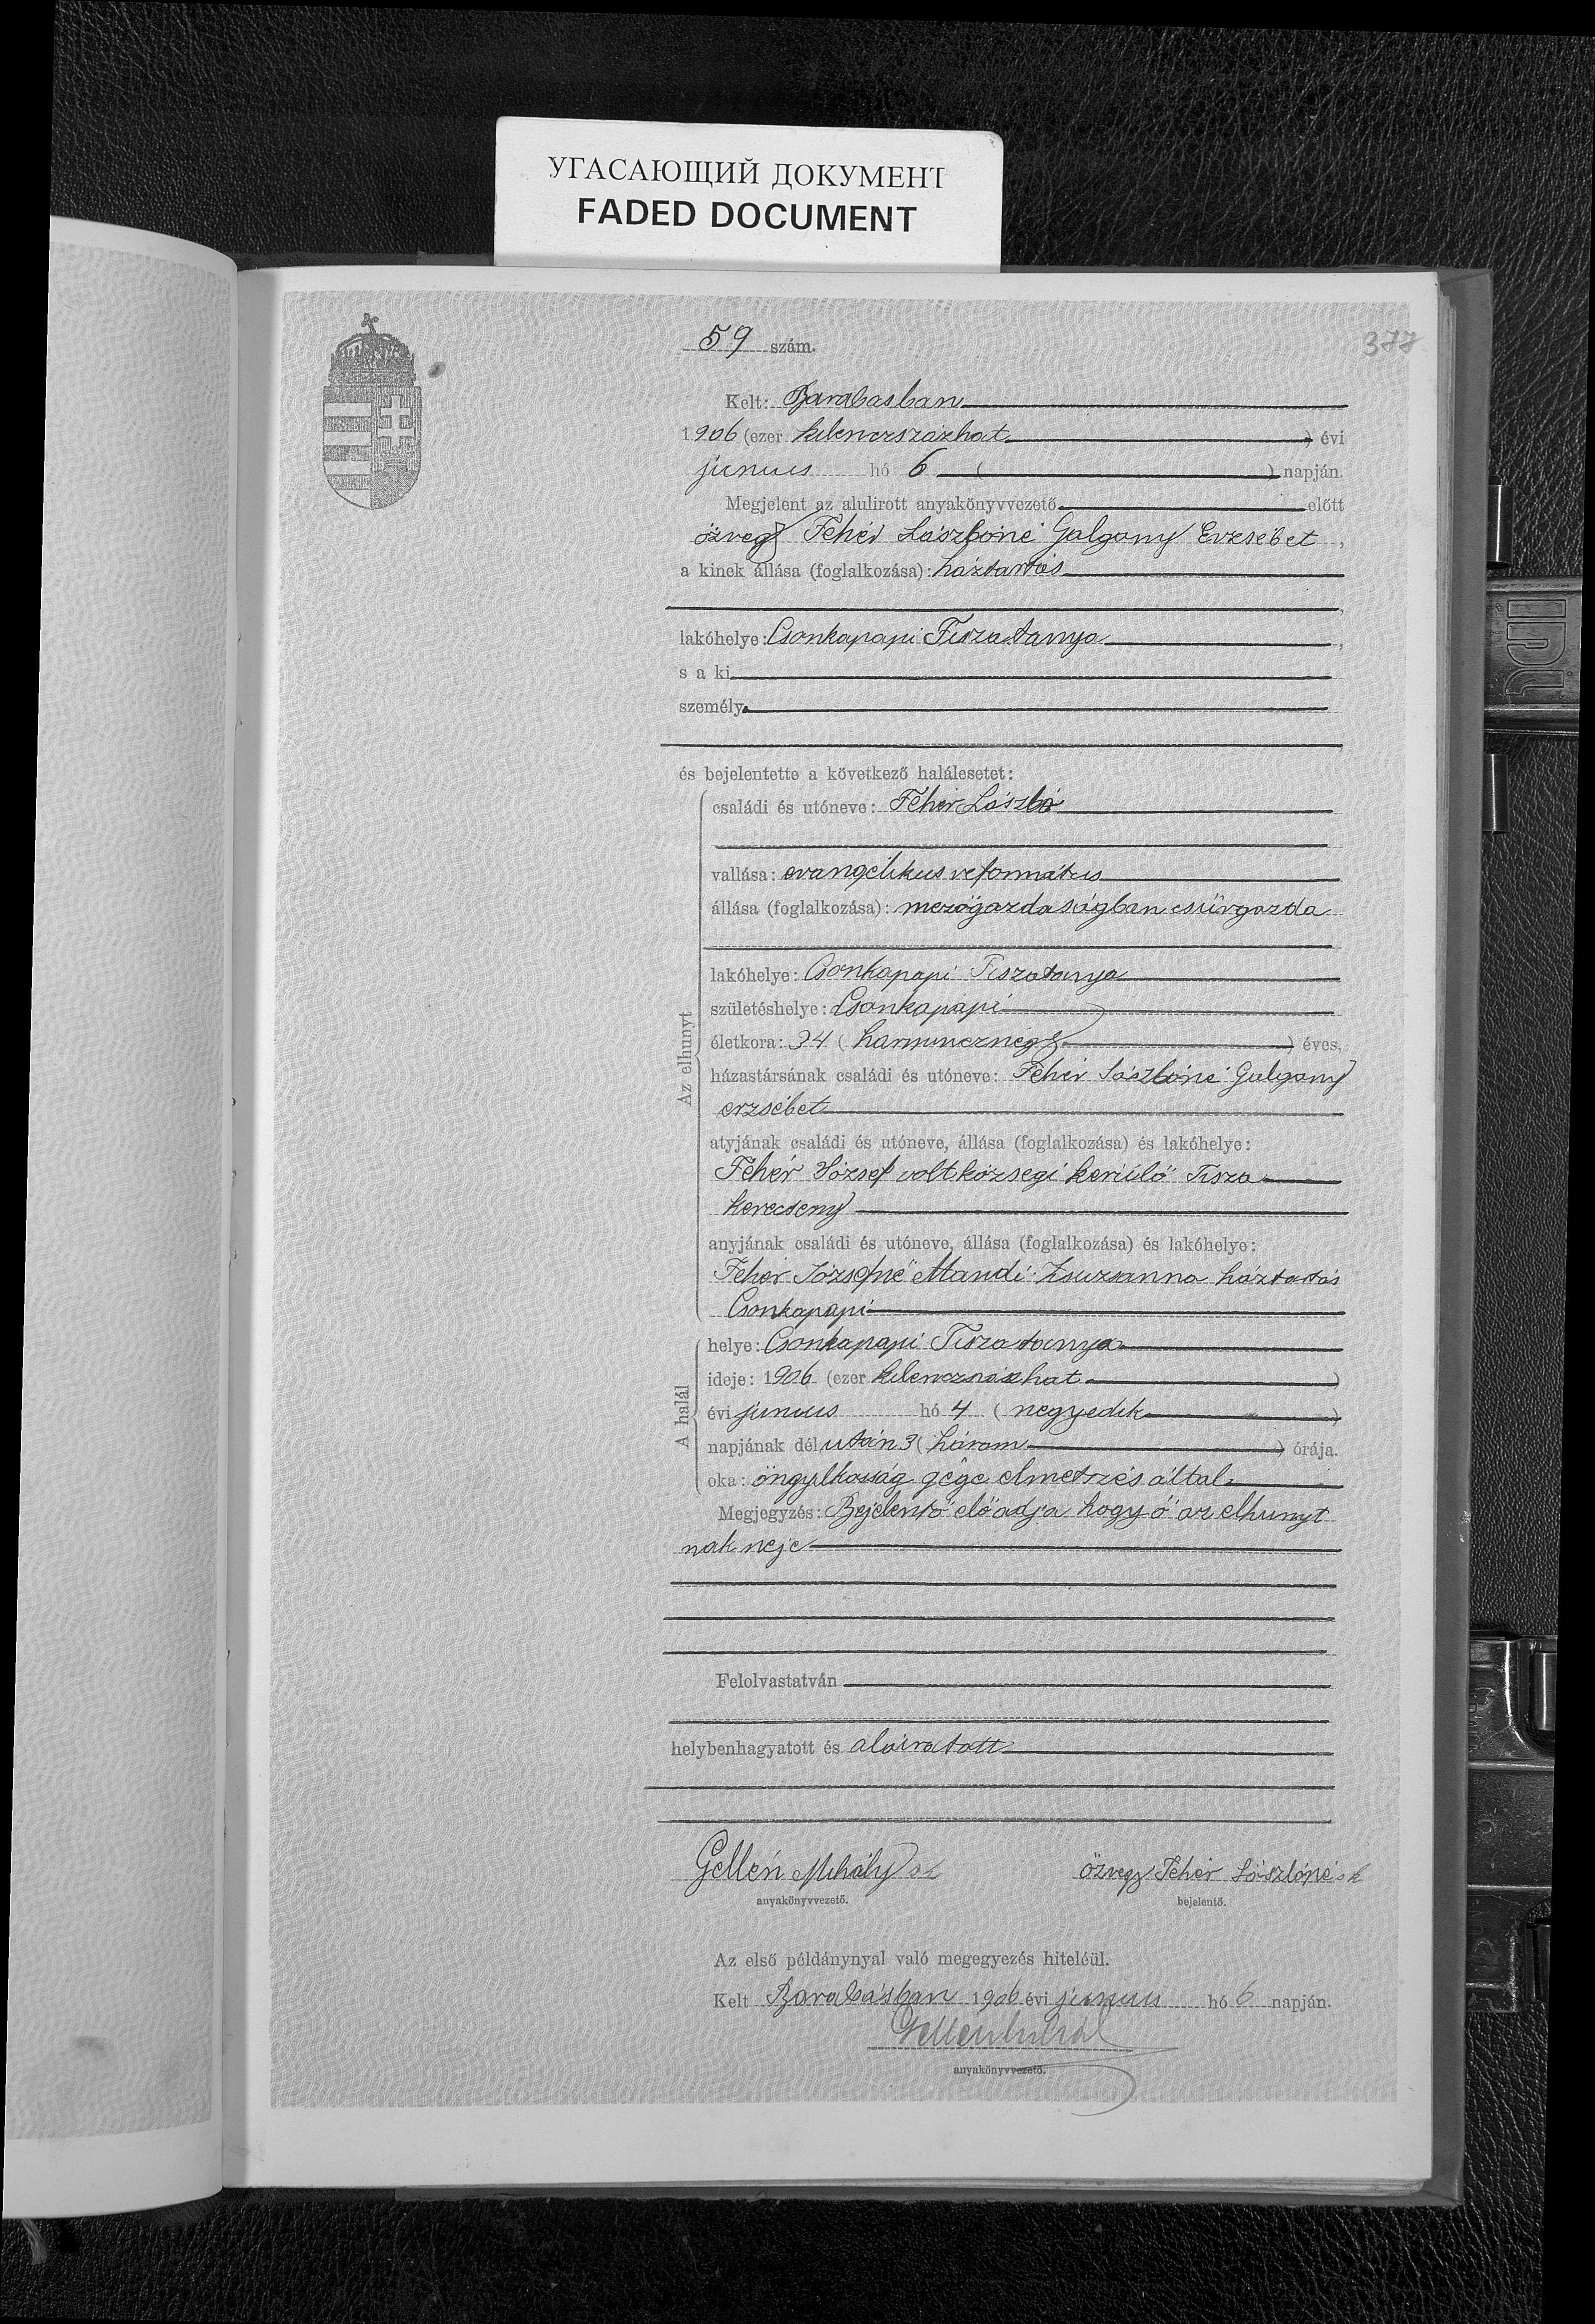 УГАСАЮЩИЙ ДОКУМЕНТ
FADED DOCUMENT
377
59 szám.
Kelt: Barabasban
1906 (ezer kilenczszázhat ) évi
junius hó 6 ( ) napján.
Megjelent az alulirott anyakönyvvezető előtt
özvegy Fehér Lászlóné Galgany Erzsébet ,
a kinek állása (foglalkozása): háztartás
,
lakóhelye: Csonkapapi Tisza tanya ,
s a ki
személy
és bejelentette a következő halálesetet:
Az elhunyt
családi és utóneve: Fehér László
vallása: evangélikus református
állása (foglalkozása): mezőgazdaságban csürgazda
lakóhelye: Csonkapapi Tiszatanya
születéshelye: Csonkapapi
életkora: 34 (harmincznégy ) éves,
házastársának családi és utóneve: Fehér Lászlóné Galgany
erzsébet
atyjának családi és utóneve, állása (foglalkozása) és lakóhelye:
Fehér József volt községi kerülő Tisza
kerecseny
anyjának családi és utóneve, állása (foglalkozása) és lakóhelye:
Fehér Józsefné Mandi Zsuzsanna háztartás
Csonkapapi
A halál
helye: Csonkapapi Tisza tanya
ideje: 1906 (ezer kilenczszázhat )
évi junius hó 4 (negyedik )
napjának délután 3 (három ) órája.
oka: öngyilkosság gége elmetszés által
Megjegyzés: Bejelentő előadja hogy ő az elhunyt
nak neje
Felolvastatván
helybenhagyatott és aláiratott
Gellén Mihály sk özvegy Fehér Lászlóné sk
anyakönyvvezető. bejelentő.
Az első példánynyal való megegyezés hiteléül.
Kelt Barabásban 1906 évi junius hó 6 napján.
Gellén Mihál
anyakönyvvezető.